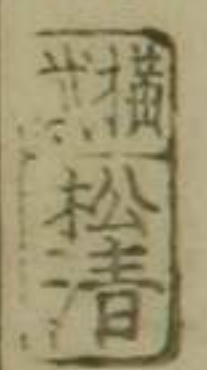 横
松清